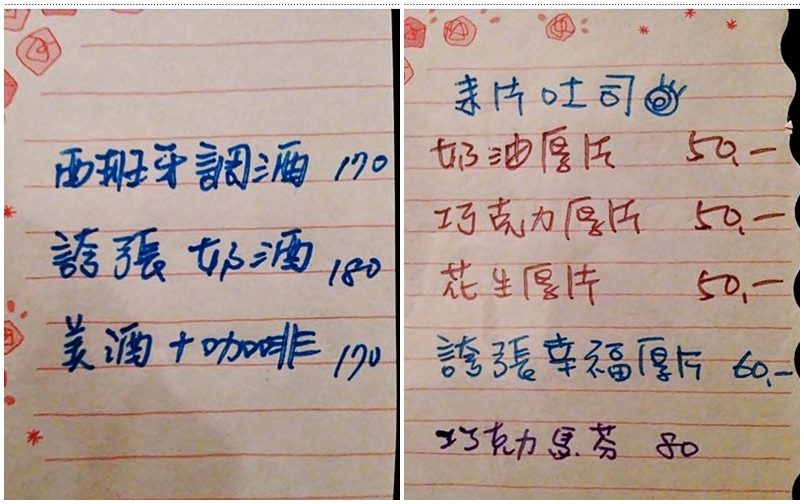 西班牙調酒 170
誇張奶酒 180
美酒+咖啡 170
来片吐司
奶油厚片 50.-
巧克力厚片 50.-
花生厚片 50.-
誇張幸福厚片 60.-
巧克力馬芬 80